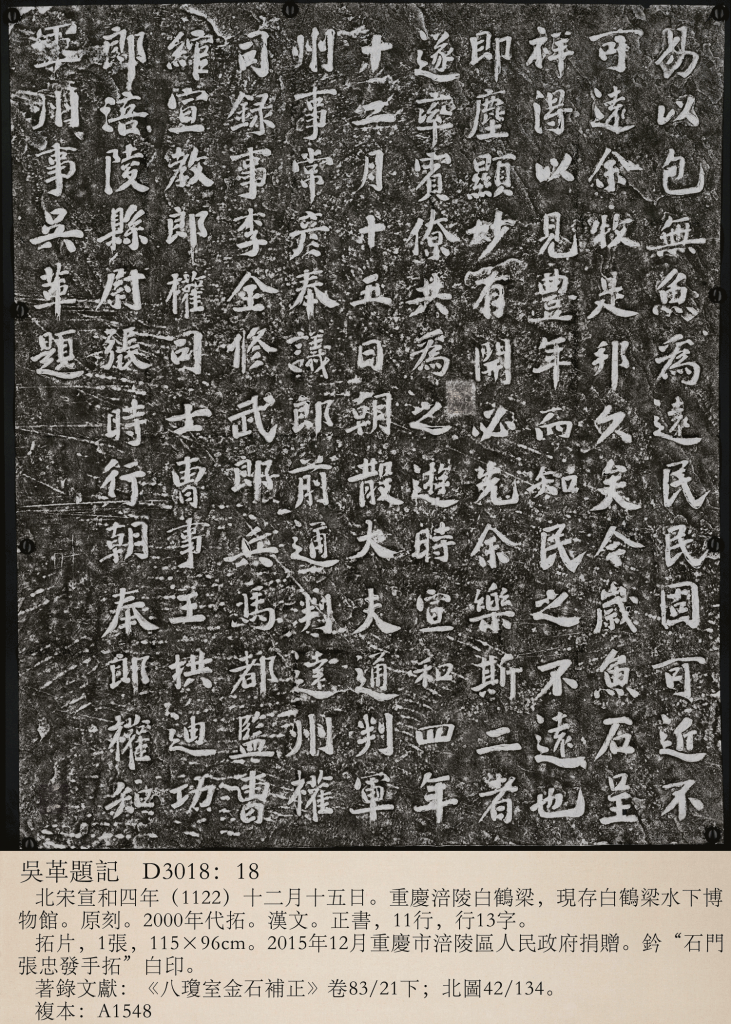 易以包無魚為遠民民固可近不
可遠余牧是邦久矣今歲魚石呈
祥得以見豊年而知民之不遠也
即塵顯妙有開必先余樂斯二者
遂率賓僚共為之遊時宣和四年
十二月十五日朝散大夫通判軍
州事常彥奉議郎前通判達州權
司錄事李全修武郎兵馬都監曹
綰宣教郎權司士曹事王拱迪功
郎涪陵縣尉張時行朝奉郎權知
軍州事吳革題
吳革題記 D3018：18
北宋宣和四年（1122）十二月十五日。重慶涪陵白鶴梁，現存白鶴梁水下博
物館。原刻。2000年代拓。漢文。正書，11行，行13字。
拓片，1張，115×96cm。2015年12月重慶市涪陵區人民政府捐贈。鈐“石門
張忠發手拓”白印。
著錄文獻：《八瓊室金石補正》卷83/21下；北圖42/134。
複本：A1548